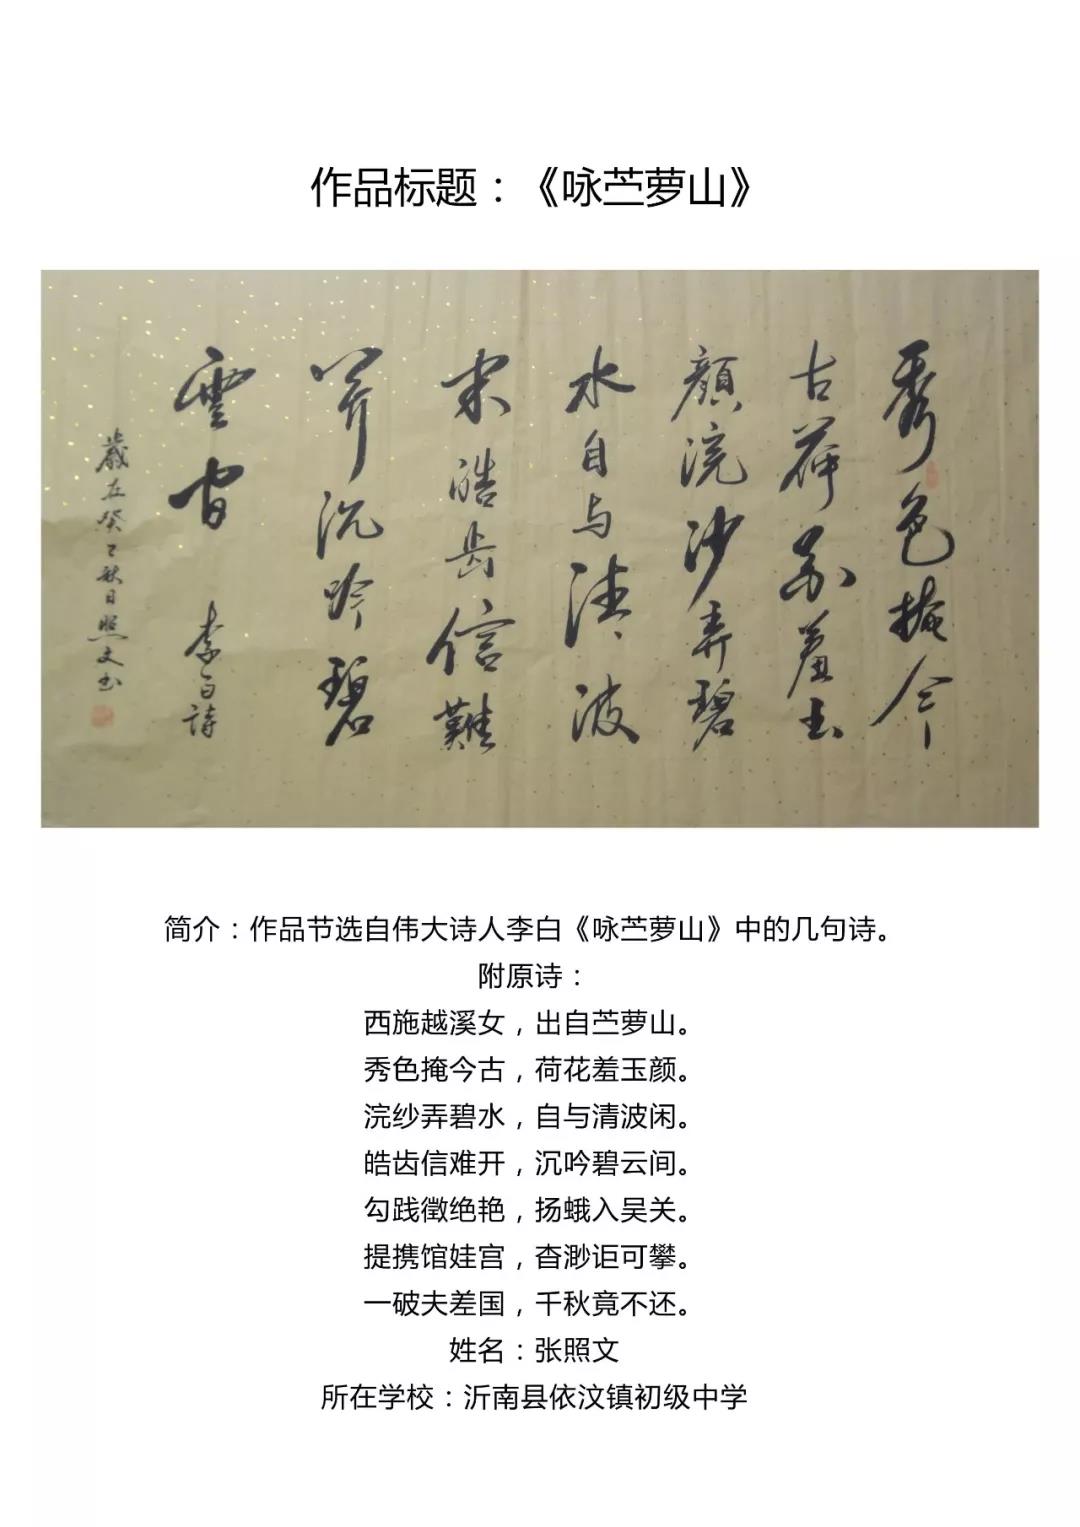 作品标题：《咏苎萝山》
秀色掩今
古荷花羞玉
顏浣沙弄碧
水自与清波
闲皓齿信難
开沉吟碧
雲间 李白诗
歲在癸巳秋日照文书
简介：作品节选自伟大诗人李白《咏苎萝山》中的几句诗。
附原诗：
西施越溪女，出自苎萝山。
秀色掩今古，荷花羞玉颜。
浣纱弄碧水，自与清波闲。
皓齿信难开，沉吟碧云间。
勾践徵绝艳，扬蛾入吴关。
提携馆娃宫，杳渺讵可攀。
一破夫差国，千秋竟不还。
姓名：张照文
所在学校：沂南县依汶镇初级中学